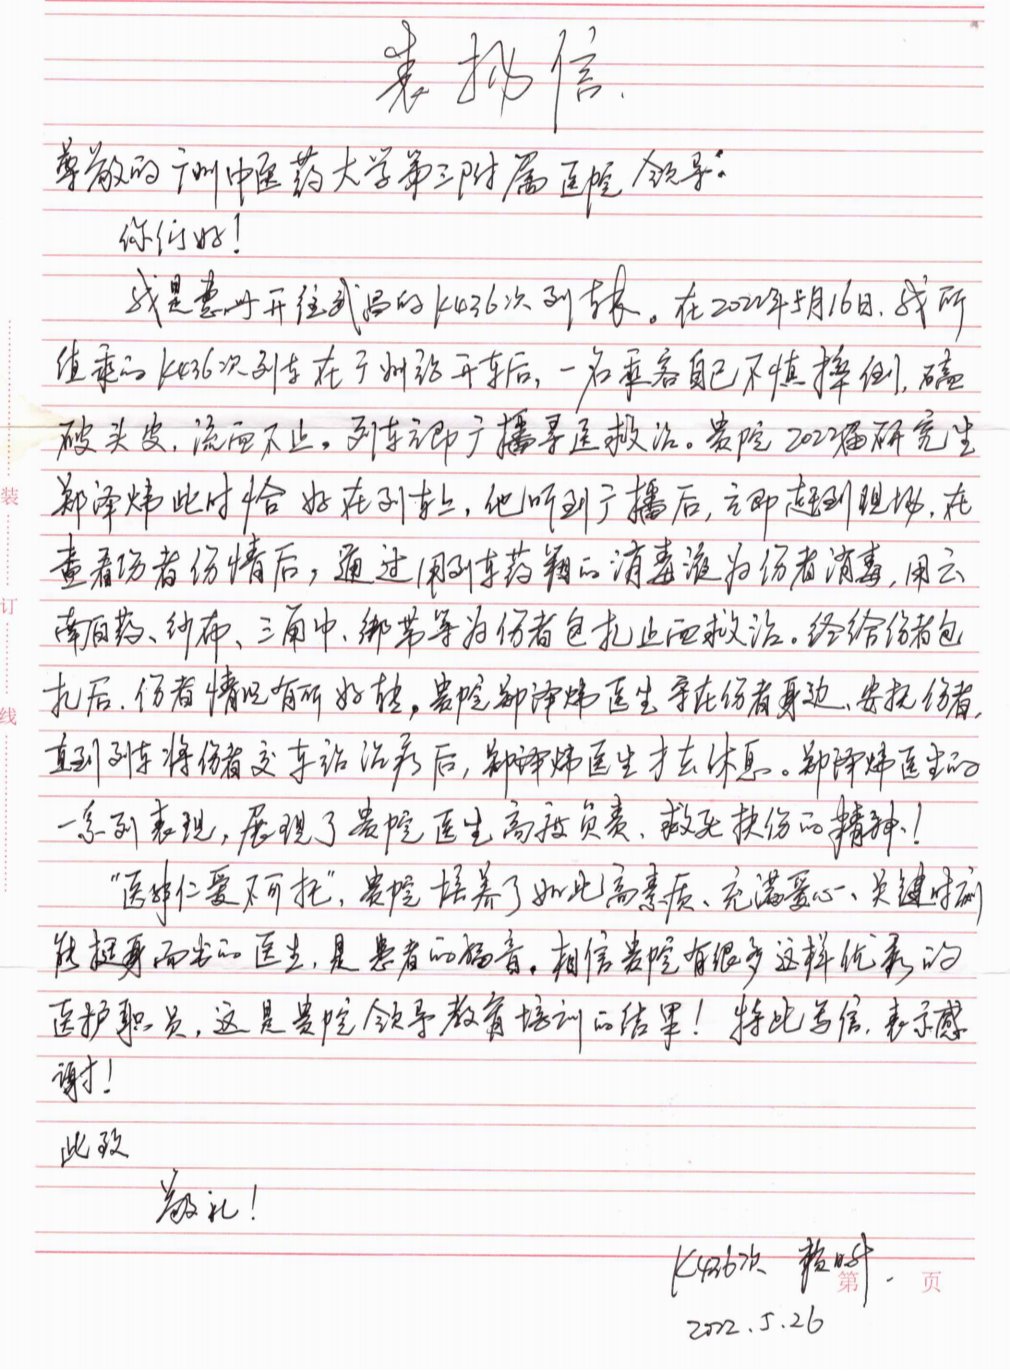 表扬信.
尊敬的广州中医药大学第三附属医院领导:
你们好!
我是惠州开往武昌的K436次列车长。在2022年5月16日,我所
值乘的K436次列车在广州站开车后,一名乘客自己不慎摔倒,磕
破头皮,流血不止。列车立即广播寻医救治。贵院2022届研究生
郑泽炜此时恰好在列车上,他听到广播后,立即赶到现场,在
查看伤者伤情后,通过用列车药箱的消毒液为伤者消毒,用云
南白药、纱布、三角巾、绑带等为伤者包扎止血救治。经给伤者包
扎后,伤者情况有所好转,贵院郑泽炜医生守在伤者身边、安抚伤者,
直到列车将伤者交车站治疗后,郑泽炜医生才去休息。郑泽炜医生的
一系列表现,展现了贵院医生高度负责、救死扶伤的精神!
“医非仁爱不可托”,贵院培养了如此高素质、充满爱心、关键时刻
能挺身而出的医生,是患者的福音。相信贵院有很多这样优秀的
医护职员,这是贵院领导教育培训的结果!特此写信,表示感
谢!
此致
敬礼!
K436次
2022.5.26
第 页
装
订
线